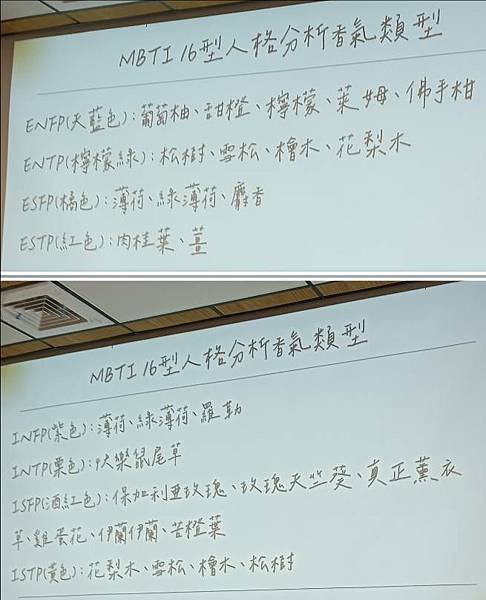 MBTI 16型人格分析香氣類型
ENFP(天藍色):葡萄柚、甜橙、檸檬、萊姆、佛手柑
ENTP(檸檬綠):松樹、雪松、檜木、花梨木
ESFP(橘色):薄荷、綠薄荷、麝香
ESTP(紅色):肉桂葉、薑
MBTI 16型人格分析香氣類型
INFP(紫色):薄荷、綠薄荷、羅勒
INTP(栗色):快樂鼠尾草
ISFP(酒紅色):保加利亞玫瑰、玫瑰天竺葵、真正薰衣
草、雞蛋花、伊蘭伊蘭、苦橙葉
ISTP(黃色):花梨木、雪松、檜木、松樹